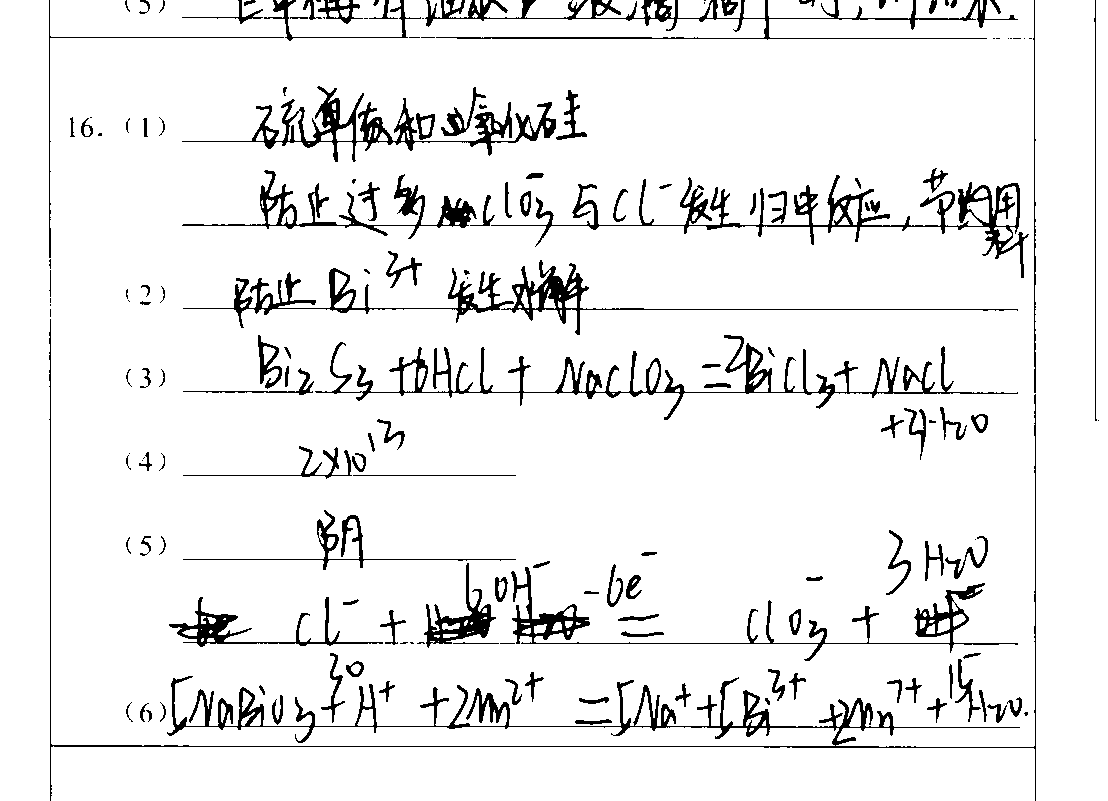 (5)
16. (1) 硫单质和过氧化硅
防止过多ClO3⁻与Cl⁻发生归中反应，节约用料
(2) 防止Bi³⁺发生水解
(3) Bi2S3+6HCl+NaClO3=2BiCl3+NaCl
+3H2O
(4) 2×10¹³
(5) 阴
Cl⁻+6OH⁻-6e⁻=ClO3⁻+3H2O
(6) 5NaBiO3+30H⁺+2Mn²⁺=5Na⁺+5Bi³⁺+2Mn⁷⁺+15H2O.